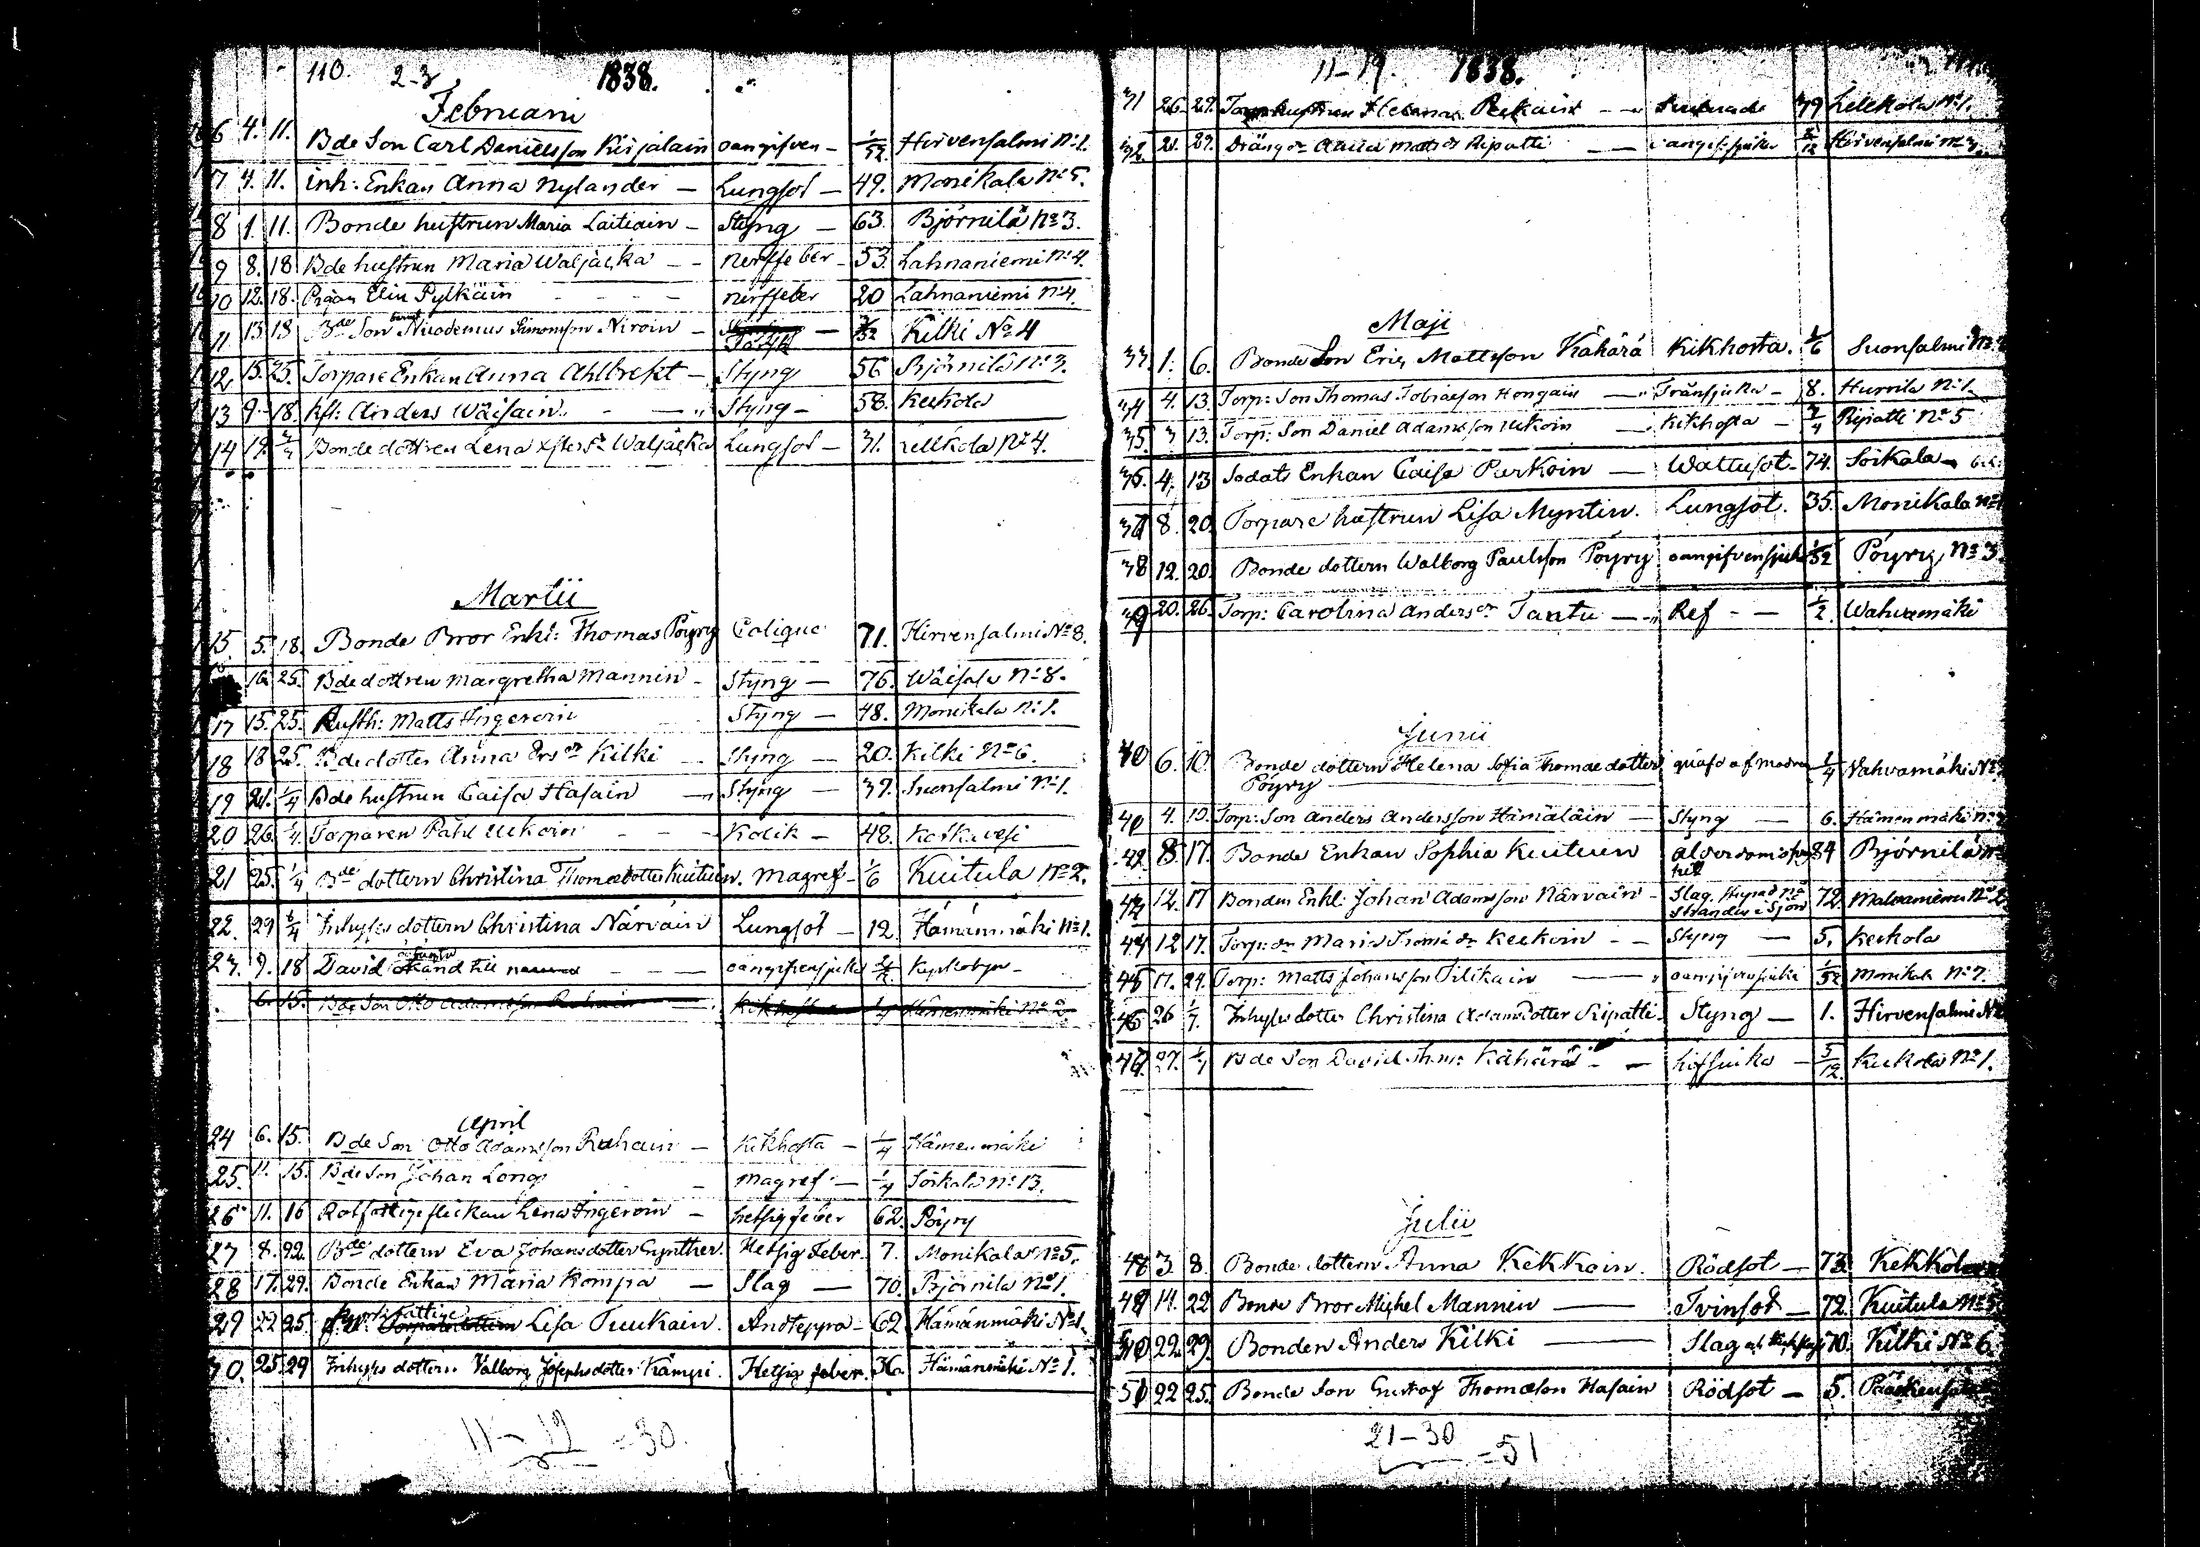 110. 2-3 1838.
Februarii
6 4. 11. Bde Son Carl Danielsson Kirjalain oangifven - 1/52 Hirvensalmi No 1.
7 4. 11. Inh: Enkan Anna Nylander - Lungsot - 49. Monikala No 5.
8 1. 11. Bonde hustrun Maria Laitiain - Styng - 63. Björnilä No 3.
9 8. 18 Bde hustrun Maria Waljacka - - nerffeber - 53. Lahnaniemi No 4.
10 12. 18. Pigan Elin Pylkäin - - - nerffeber 20 Lahnaniemi No 4.
11 13 18 Bde Son Nicodemus Simonsson Niroin - Kilki No 4
12 15. 25. Torpare Enkan Anna Ahlbrekt - Styng 56 Björnilä No 3.
13 9 - 18. Anders Wäisäin - - Styng - 58. Kekkola
14 19. 3/4 Bonde dottren Lena Waljacka Lungsot - 31. No 4.
Martii
15. 5. 18. Bonde Bror Enkl: Thomas Pöyry Colique 71. Hirvensalmi No 8.
16. 25. Bde dottren Margretha Mannin - Styng - 76. Wäisälä No 8.
17 15. 25. Rusth: Matts Ingeroin Styng - 48. Monikala No 1.
18 18 25. Bde dotter Anna Kilki - Styng - 20. Kilki No 6.
19 21. 1/4 Bde hustrun Caisa Hasain - Styng - 37. Suonsalmi No 1.
20 26. 1/4 Torparen Påhl Uckoin - - - Kolik - 48. Koskivesi
21 25. 1/4 Bde dottern Christina Thomædotter Kuituin. Magref - 1/6 Kuitula No 2.
22. 29 Inhyses dottern Christina Närväin Lungsot - 12. Hämänmäki No 1.
23. 9. 18 David okänd till - - - oangifvensjuka
6. 15. Bde Son Otto Adamsson Ruhain Kikhosta 1/4 Hämenmäki No 2.
April
24 6. 15. Bde Son Otto Adamsson Ruhain - Kikhosta - 1/4 Hämenmäki
25. 11. 15. Bde Son Johan Long - Magref - 1/4 Soikala No 13.
26 11. 16 Rotfattige flickan Lena Ingeroin - hetsig feber 62. Pöyry
27 8. 22. Bde dottern Eva Johansdotter Gynther. Hetsig Feber. 7. Monikala No 5.
28 17. 29. Bonde Enkan Maria Kompa - Slag - 70. Björnilä No 1.
29 22 25. Lisa Tuukain. Andteppa - 62. Hämänmäki No 1.
30. 25. 29 Inhyses dottern Valborg Josephsdotter Kämpi. Hetsig feber. 36. Hämänmäki No 1.
11 - 19 = 30.
11 - 19. 1838.
31 26. 29. Helena - - 79 No 1.
32 21. 29. Dräng Matts Ripatti - - oangif: sjuka 5/12 Hirvensalmi No
Maji
33. 1. 6. Bonde Son Eric Mattsson Kähärä Kikhosta. 1/6 Suonsalmi No
34 4. 13. Torp: Son Thomas Tobiasson Hongain - Trånsjuka - 8. Hurrila No 1.
35. 3 13. Torp: Son Daniel Adamsson Uckoin - Kikhosta - 3/4 Ripatti No 5
36. 4. 13 Sodats Enkan Caisa Purkoin - Wattusot - 74. Soikala
37 8. 20. Torpare hustrun Lisa Myntin. Lungsot. 35. Monikala No
38 12. 20. Bonde dottern Walborg Paulsson Pöyry oangifvensjuka 1/52 Pöyry No 3.
39 20. 26. Torp: Carolina Andersdr Tantu - Ref - - 1/2. Wahvamäki
Junii
40 6. 10. Bonde dottern Helena Sofia Thomædotter qväfd af modren 1/4 Vahvamäki No
Pöyry
41 4. 10. Torp: Son Anders Andersson Hämäläin - Styng - 6. Hämenmäki No
42. 8. 17. Bonde Enkan Sophia Kuituin 84 Björnilä No
43 12. 17 Bonden Enkl: Johan Adamsson Närväin - Slag, 72. Malvaniemi No 2.
Stranden i Sjön
44 12 17. Torp: dr Maria Thomæ dr Keckoin - - Styng - 5. Keckola
45 17. 24. Torp: Matts Johansson Pilikain - oangifvensjuka 1/52 Monikala No 7.
46 26 1/7. Inhyses dotter Christina Adamsdotter Ripatti. Styng - 1. Hirvensalmi No
47. 27. 1/7 Bde Son David Kähärä - - 5/12. Keckola No 1.
Julii
48 3 8. Bonde dottern Anna Kekkoin. Rödsot - 73. Kekkola
49 14. 22 Bonde Bror Michel Mannin - Tvinsot - 72. Kuitula No
50 22. 29. Bonden Anders Kilki - Slag 70. Kilki No 6.
51 22 25. Bonde Son Gustaf Thomæson Hasain Rödsot - 5.
21 - 30 = 51